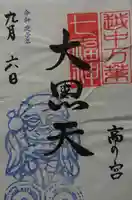 越中万葉
七福神
大黒天
高の宮
九月六日